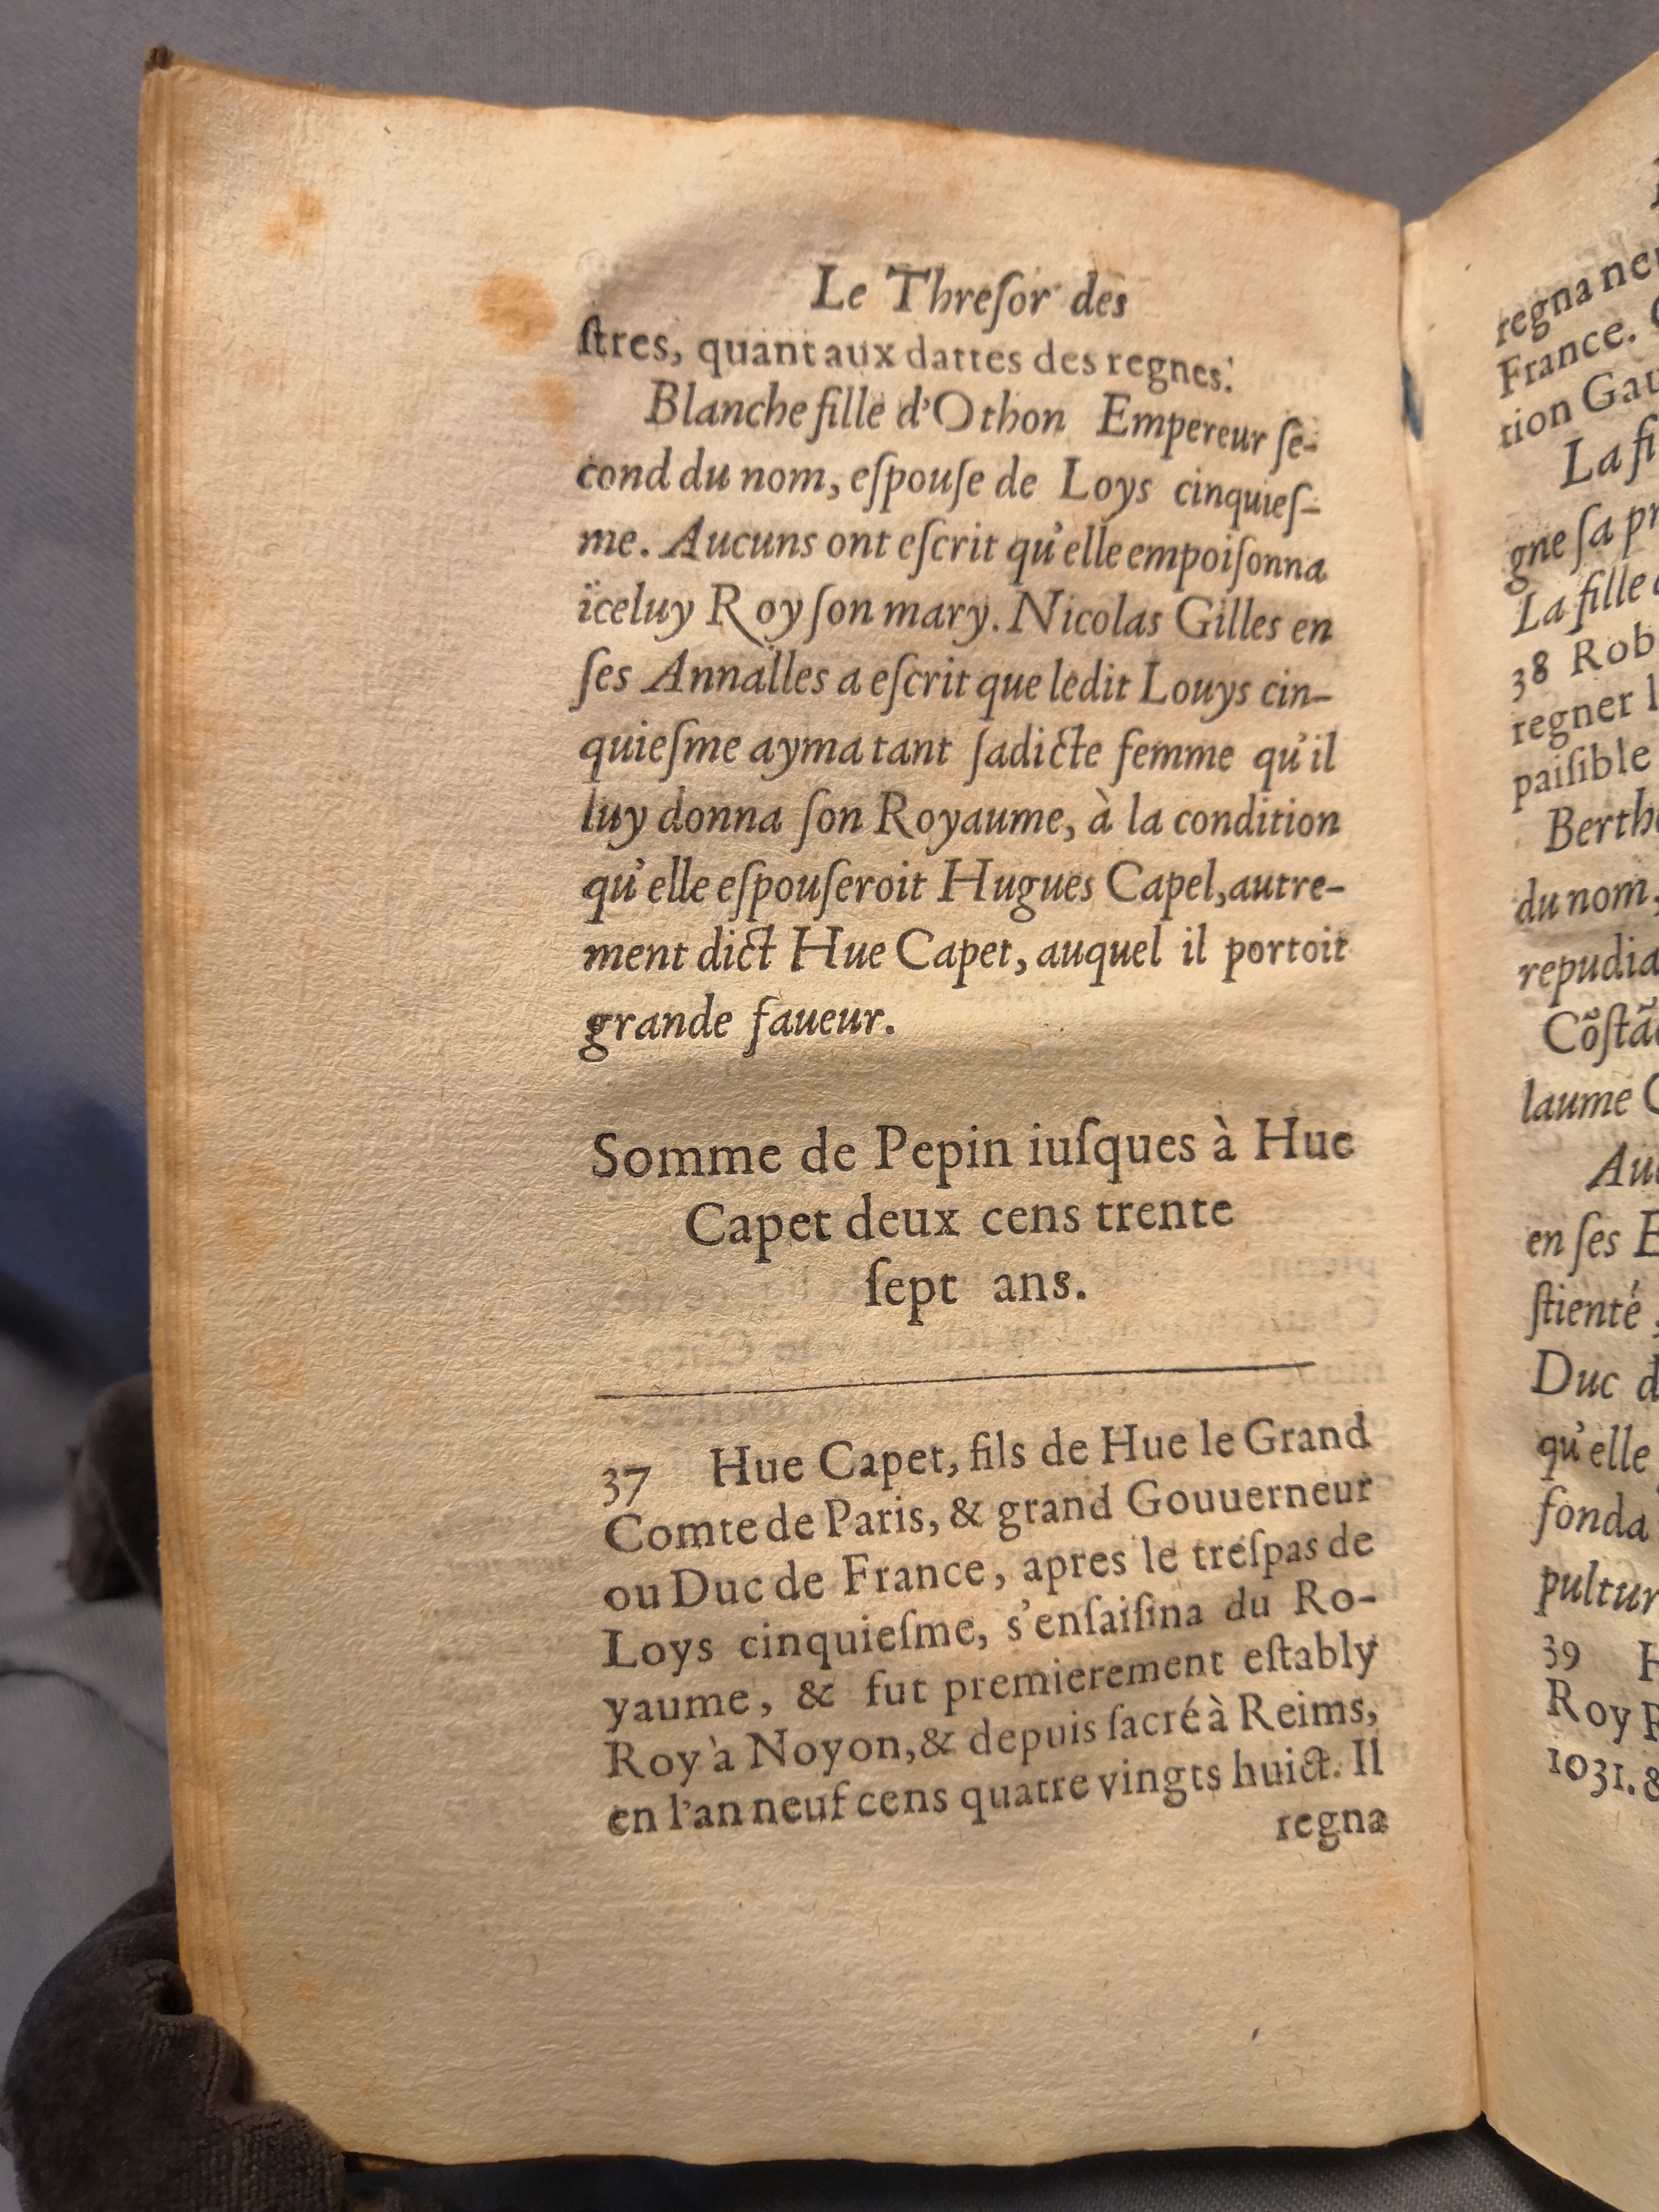 Le Threſor des
ſtres, quant aux dattes des regnes.
Blanche fille d'Othon Empereur ſe-
cond du nom, eſpouſe de Loys cinquieſ-
me. Aucuns ont eſcrit qu'elle empoiſonna
iceluy Roy ſon mary. Nicolas Gilles en
ſes Annalles a eſcrit que ledit Louys cin-
quieſme ayma tant ſadicte femme qu'il
luy donna ſon Royaume, à la condition
qu'elle eſpouſeroit Hugues Capel, autre-
ment dict Hue Capet, auquel il portoit
grande faueur.
Somme de Pepin iuſques à Hue
Capet deux cens trente
ſept ans.
37 Hue Capet, fils de Hue le Grand
Comte de Paris, & grand Gouuerneur
ou Duc de France, apres le treſpas de
Loys cinquieſme, s'enſaiſina du Ro-
yaume, & fut premierement eſtably
Roy à Noyon, & depuis ſacré à Reims,
en l'an neuf cens quatre vingts huict. Il
regna
regna
France.
tion
La
gne ſa
La fille
38 Rob
regner
paiſible
du nom,
repudia
laume
en ſes
ſtienté,
Duc
qu'elle
fonda
39
Roy
1031. &